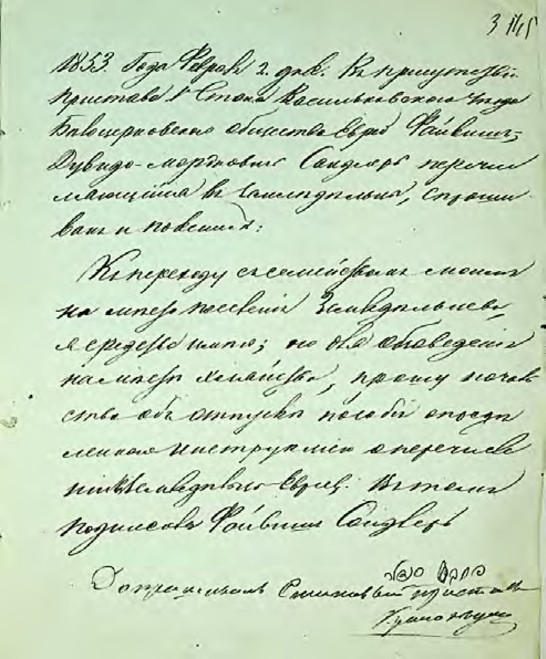 1853. Года Февраля 2. дня. Въ присутствіи
Пристава 1 Стана Васильковскаго уезда
Белоцерковскаго общества Еврей Файвишъ
Дувидо-Мордковичъ Сандлеръ перечи
сляющійся въ Земледельцы, спраши
ванъ и показалъ:
Къ переходу съ семействомъ моимъ
на место поселенія Земледельцевъ,
я средства имею; но для обзаведенія
на месте хозяйства, прошу
ство объ отпуске пособія опреде
леннаго Инструкціею о перечисле
Земледельцы Евреевъ. Въ томъ
подписався Файвишъ Сандлеръ
Допрашивалъ Становый Приставъ